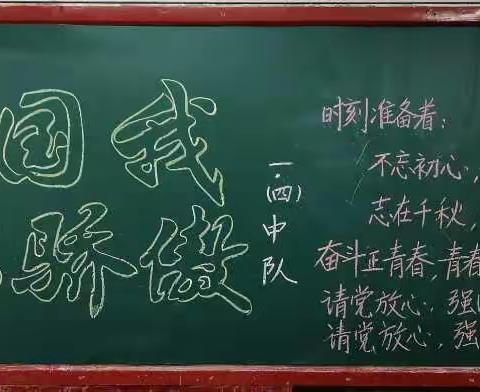 国我
骄傲
一.(四)中队
时刻准备着:
不忘初心,
志在千秋,
奋斗正青春,青春
请党放心,强
请党放心,强